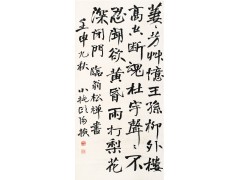 萋〻芳草憶王孫柳外樓
高空斷魂杜宇聲〻不
忍聞欲黃昏雨打梨花
深閉門 臨翁松禪書
壬申九秋